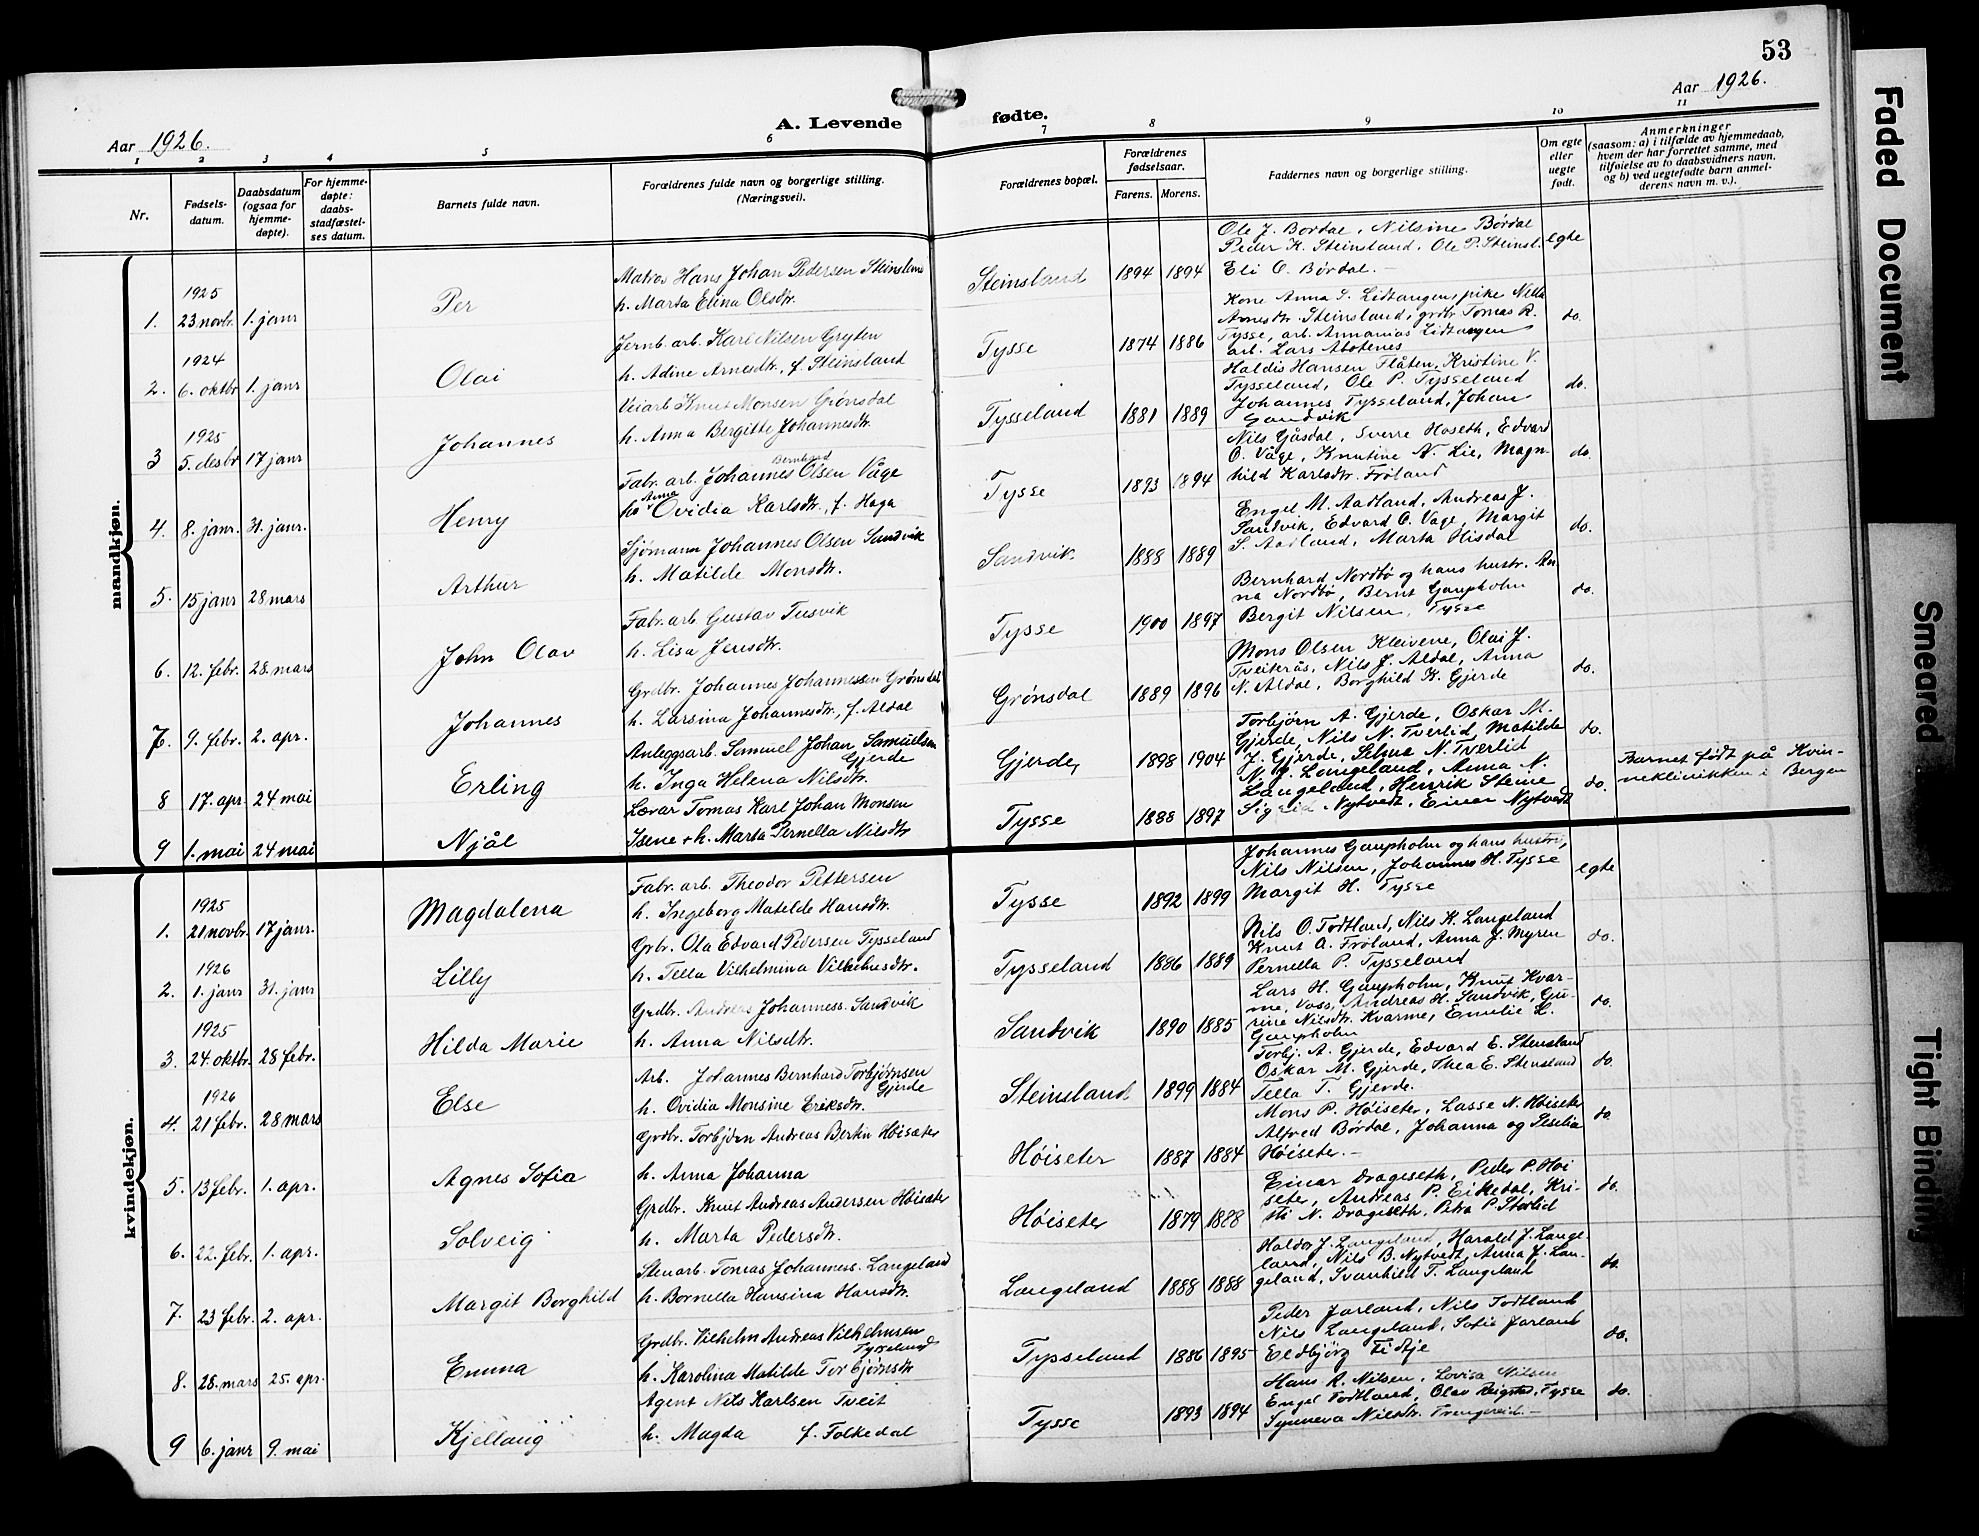 53
Aar 1926.
A. Levende fødte.
Aar 1926.
1 2 3 4 5 6 7 8 9 10 11
Nr.
Fødsels-
datum.
Daabsdatum
(ogsaa for
hjemme-
døpte).
For hjemme-
døpte:
daabs-
stadfæstel-
ses datum.
Barnets fulde navn.
Forældrenes fulde navn og borgerlige stilling.
(Næringsvei).
Forældrenes bopæl.
Forældrenes
fødselsaar.
Farens. Morens.
Faddernes navn og borgerlige stilling.
Om egte
eller
uegte
født.
Anmerkninger
(saasom: a) i tilfælde av hjemmedaab,
hvem der har forrettet samme, med
tilføielse av to daabsvidners navn,
og b) ved uegtefødte barn anmel-
derens navn m. v.).
mandkjøn.
1925
1. 23 novbr. 1. janr Per
Hans Johan Pedersen Steinsland
h. Marta Elina Olsdtr.
Steinsland 1894 1894
Ole J. Børdal, Nilsine Børdal
Peder K. Steinsland, Ole P. Steinsl.
Eli O. Børdal. —
egte
1924
2. 6. oktbr 1. janr Olai
Jernb. arb. Karl Nilsen Gryten
h. Adine Arnesdtr., f. Steinsland
Tysse 1874 1886
Kone Anna S. Lidtangen, pike Nella
Arnesdtr. Steinsland, grdbr Tomas R.
Tysse, arb. Annanias Lidtangen
arb. Lars
do.
1925
3 5. desbr 17 janr Johannes
Veiarb Knut Monsen Grønsdal
h. Anna Bergitte Johannesdtr.
Tysseland 1881 1889
Haldis Hansen Flåten, Kristine V.
Tysseland, Ole P. Tysseland
Johannes Tysseland, Johan
Sandvik
do.
4. 8. janr. 31. janr. Henry
Fabr. arb. Johannes Bernhard Olsen Våge
h. Anna Ovidia Karlsdtr., f. Haga
Tysse 1893 1894
Nils Gåsdal, Sverre Hoseth, Edvard
O. Våge, Knutine N. Lie, Magn-
hild Karlsdtr. Frøland
do.
5. 15 janr 28 mars Arthur
Sjømann Johannes Olsen Sandvik
h. Matilde Monsdtr.
Sandvik. 1888 1889
Engel M. Aadland, Andreas J.
Sandvik, Edvard O. Våge, Margit
S. Aadland, Marta Hisdal
do.
6. 12. febr. 28. mars John Olav
Fabr. arb. Gustav Tusvik
h. Lisa Jensdtr.
Tysse 1900 1897
Bernhard Nordbø og hans hustr. An
na Nordbø, Bernt Gaupholm
Bergit Nilsen, Tysse
do.
7. 9. febr. 2. apr. Johannes
Grdbr. Johannes Johannessen Grønsdal
h. Larsina Johannesdtr., f. Aldal
Grønsdal 1889 1896
Mons Olsen Kleivene, Olai J.
Tveiterås, Nils J. Aldal, Anna
N. Aldal, Borghild K. Gjerde
do.
8 17. apr 24 mai Erling
Anleggsarb. Samuel Johan Samuelsen
Gjerde
h. Inga Helena Nilsdtr.
Gjerde, 1898 1904
Torbjørn A. Gjerde, Oskar M.
Gjerde, Nils N. Tverlid, Matilde
J. Gjerde, Selma N. Tverlid
do.
9 1. mai 24 mai Njål
Lærar Tomas Karl Johan Monsen
Isene + h. Marta Pernella Nilsdtr
Tysse 1888 1897
N. J. Langeland, Anna N.
Langeland, Henrik Steine
Sigrid Nytvedt, Einar Nytvedt
do.
Barnet født på Kvin-
neklinikken i Bergen
kvindekjøn.
1925
1. 21 novbr. 17 janr. Magdalena
Fabr. arb. Theodor Pettersen
h. Ingeborg Matilde Hansdtr.
Tysse 1892 1899
Johannes Gaupholm og hans hustru,
Nils Nilsen, Johannes H. Tysse
Margit H. Tysse
egte
1926
2. 1. janr 31. janr Lilly
Grbr. Ola Edvard Pedersen Tysseland
h. Tella Vilhelmina Vilhelmsdtr.
Tysseland 1886 1889
Nils O. Todtland, Nils K. Langeland
Knut A. Frøland, Anna J. Myren
Pernella P. Tysseland
do.
1925
3. 24. oktbr. 28 febr. Hilda Marie
Grdbr. Andreas Johanness. Sandvik
h. Anna Nilsdtr.
Sandvik 1890 1885
Lars H. Gaupholm, Knut Kvar-
me, Voss, Andreas H. Sandvik, Gu-
rine Nilsdtr. Kvarme, Emilie L.
Gaupholm
do.
1926
4. 21 febr. 28 mars Else
Arb. Johannes Bernhard Torbjørnsen
Gjerde
h. Ovidia Monsine Eriksdtr.
Steinsland 1899 1884
Torbj. A. Gjerde, Edvard E. Stensland
Oskar M. Gjerde, Thea E. Stensland
Tella T. Gjerde.
do.
5. 13 febr. 1. apr. Agnes Sofia
Grdbr. Torbjørn Andreas Bertin Høisæter
h. Anna Johanna
Høiseter 1887 1884
Mons P. Høiseter, Lasse N. Høiseter
Alfred Børdal, Johanna og Seselia
Høiseter. —
do
6. 22. febr. 1. apr. Solveig
Grdbr. Knut Andreas Andersen Høisæter
h. Marta Pedersdtr.
Høiseter 1879 1888
Einar Drageseth, Peder P. Høi
seter, Andreas P. Eikedal, Kri-
sti N. Drageseth, Petra P. Storlid
do.
7. 23 febr. 2. apr. Margit Borghild
Stenarb. Tomas Johanness. Langeland
h. Bornella Hansina Hansdtr.
Langeland 1888 1888
Haldor J. Langeland, Harald J. Lange-
land, Nils B. Nytvedt, Anna J. Lan-
geland, Svanhild T. Langeland
do.
8. 28. mars 25. apr. Emma
Grdbr. Vilhelm Andreas Vilhelmsen
Tysseland
h. Karolina Matilde Torbjørnsdtr
Tysseland 1886 1895
Peder Jarland, Nils Todtland
Nils Langeland, Sofie Jarland
Eldbjørg Tidtje
do.
9 6. janr 9. mai Kjellaug
Agent Nils Karlsen Tveit
h. Magda f. Folkedal
Tysse 1893 1894
Hans R. Nilsen, Lovisa Nilsen
Engel Todtland, Olav Reigstad, Tysse
Synneva Nilsdtr. Trengereid. —
do.
Faded Document
Smeared
Tight Binding